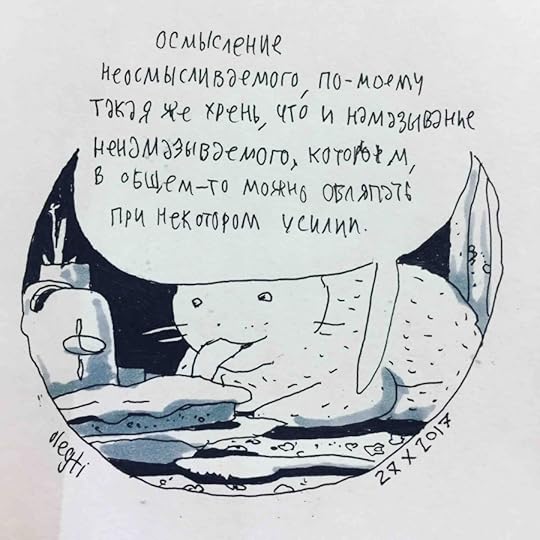 осмысление
неосмысливаемого, по-моему
такая же хрень, что и намазывание
ненамазываемого, которым,
в общем-то можно обляпать
при некотором усилии.
olegti
27 X 2017